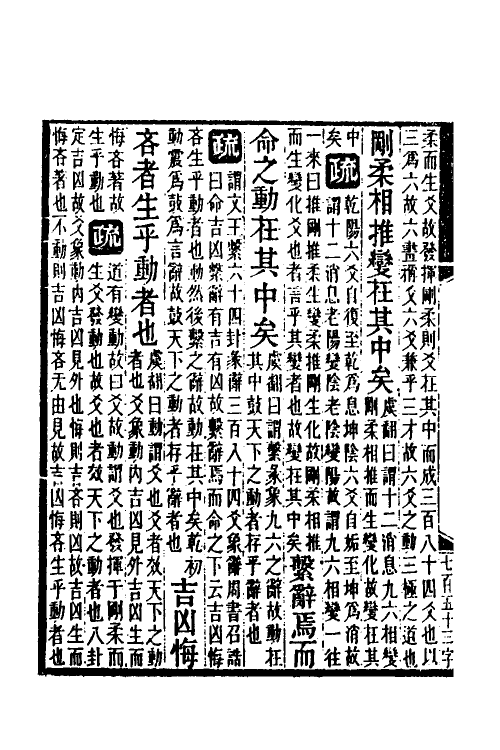 柔而生爻故發揮剛柔則爻在其中而成三百八十四爻也以
三爲六故六畫稱爻六爻兼乎三才故六爻之動三極之道也
剛柔相推變在其中矣
虞翻曰謂十二消息九六相變
剛柔相推而生變化故變在其
中
矣
疏
乾陽六爻自復至乾爲息坤陰六爻自姤至坤爲消故
謂十二消息老陽變陰老陰變陽故謂九六相變一往
一來曰推剛推柔生變柔推剛生化故剛柔相推
而生變化爻也者言乎其變者也故變在其中矣
繫辭焉而
命之動在其中矣
虞翻曰謂繫彖象九六之辭故動在
其中鼓天下之動者存乎辭者也
疏
謂文王繫六十四卦彖辭三百八十四爻象辭周書召誥
曰命吉凶繫辭有吉有凶故繫辭焉而命之下云吉凶悔
吝生乎動者也動然後繫之辭故動在其中矣乾初
動震爲鼓爲言辭故鼓天下之動者存乎辭者也
吉凶悔
吝者生乎動者也
虞翻曰動謂爻也爻者效天下之動
者也爻象動內吉凶見外吉凶生而
悔吝著故
生乎動也
疏
道有變動故曰爻故動謂爻也發揮于剛柔而
生爻發動也故爻也者效天下之動者也八卦
定吉凶故爻象動內吉凶見外也悔則吉吝則凶故吉凶生而
悔吝著也不動則吉凶悔吝无由見故吉凶悔吝生乎動者也
七百五十三字